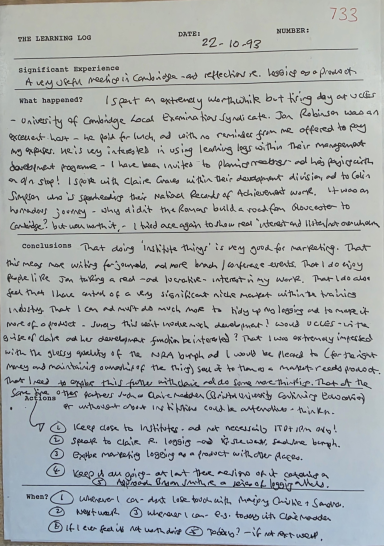 733
THE LEARNING LOG DATE: 22-10-93 NUMBER:
Significant Experience
A very useful meeting in Cambridge - and reflections re. logging as a product.
What happened? I spent an extremely worthwhile but tiring day at UCLES
- University of Cambridge Local Examinations Syndicate. Jan Robinson was an
excellent host - he paid for lunch, and with no reminder from me offered to pay
my expenses. He is very interested in using learning logs within their management
development programme - I have been invited to planning meetings and
I spoke with Claire within their development division and to Colin
Simpson who is spearheading their National Records of Achievement work. It was an
horrendous journey - why didn't the Romans build a road from Gloucester to
Cambridge? but worth it - I tried once again to show real interest and listen
Conclusions That doing 'institute things' is very good for marketing. That
this means more writing for journals, and more branch / conference events. That I do enjoy
people like Jan taking a real - and lucrative - interest in my work. That I do also
feel that I have control of a very significant niche market within the training
industry. That I can and must do much more to tidy up my logging and to make it
more of a product - surely this isn't much development? Would UCLES - in the
guise of Claire and her development function be interested? That I was extremely impressed
with the glossy quality of the NRA bumph and I would be pleased to (for the right
money and maintaining ownership of the thing) sell it to them as a market ready product.
That I need to explore this further with Claire and do some more thinking. That at the
same time other partners such as Claire (Bristol University Continuing Education)
or institutions could be alternative
Actions
① Keep close to Institutes - and not necessarily ITD + IPM only!
② Speak to Claire R. logging - and send me bumph.
③ Explore marketing logging as a product with other places.
④ Keep it all going - at last there are signs of it
⑤ Approach with a series of logging
When? ① Whenever I can - don't lose touch with + Sandra.
② Next week ③ Whenever I can - e.g. today with Claire
④ If I ever feel it's not worth doing ⑤ Today! - if not next week.